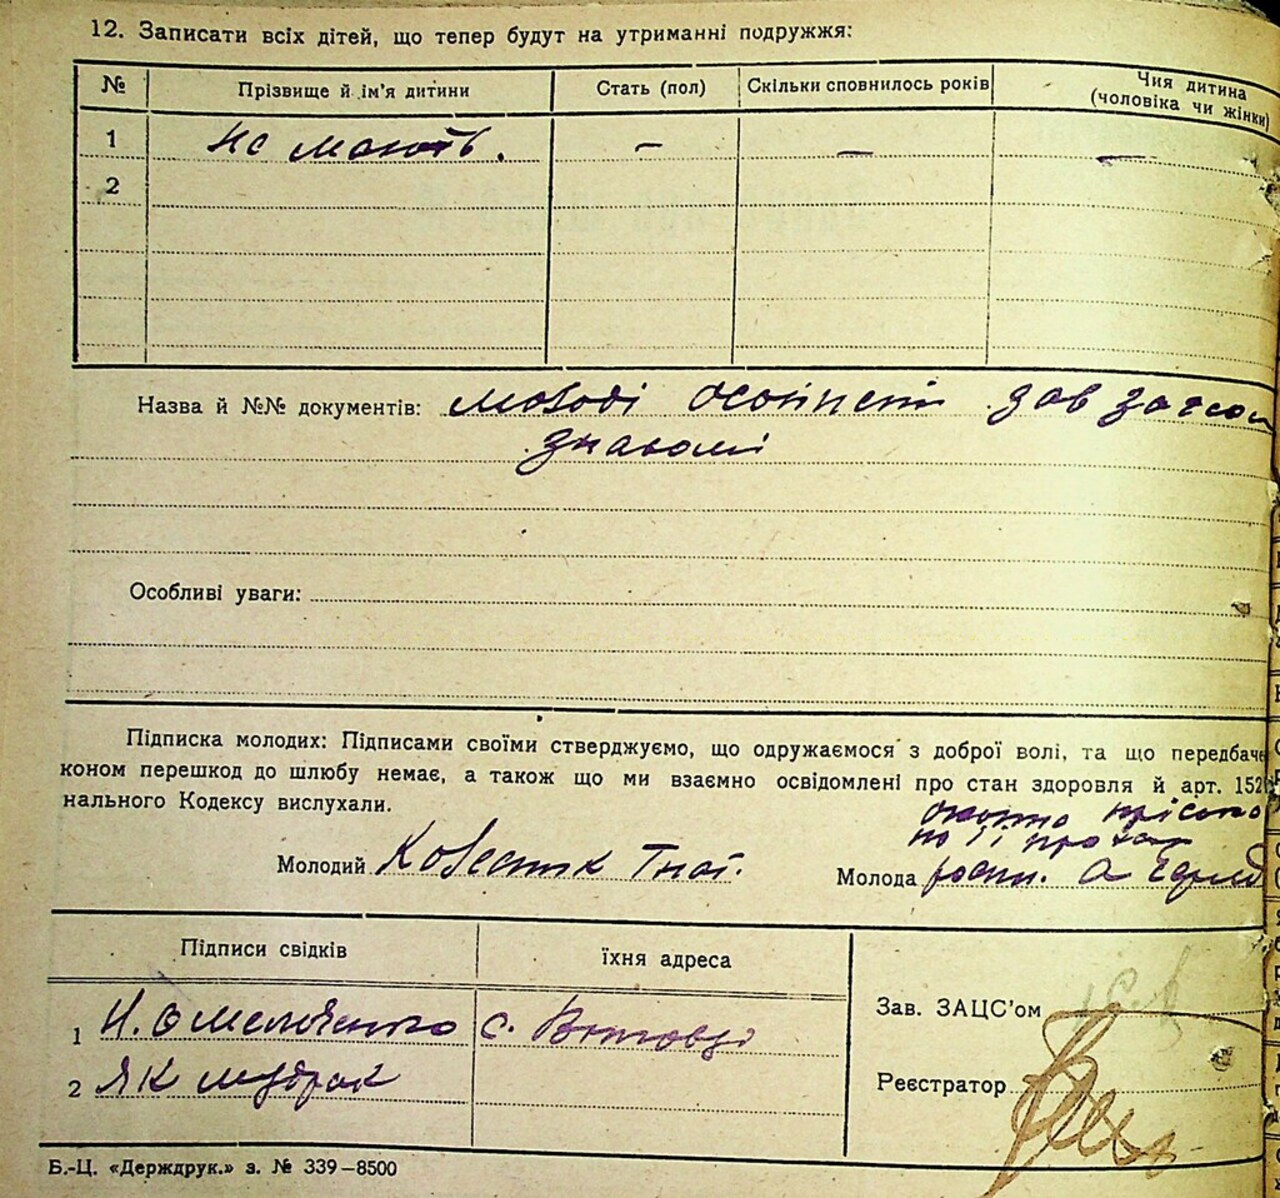 12. Записати всіх дітей, що тепер будут на утриманні подружжя:
№ Прізвище й ім'я дитини Стать (пол) Скільки сповнилось років Чия дитина (чоловіка чи жінки)
1 не мають. — — —
2
Назва й №№ документів: молоді особисті зав загсом
знакомі
Особливі уваги:
Підписка молодих: Підписами своїми стверджуємо, що одружаємося з доброї волі, та що передбаче
коном перешкод до шлюбу немає, а також що ми взаємно освідомлені про стан здоровля й арт. 152
нального Кодексу вислухали.
по її
Молодий Колесник Гнат. Молода роспи. а
Підписи свідків їхня адреса
Зав. ЗАЦС'ом
1 Омельченко с.
2 Як мудрак
Реєстратор
Б.-Ц. «Держдрук.» з. № 339—8500